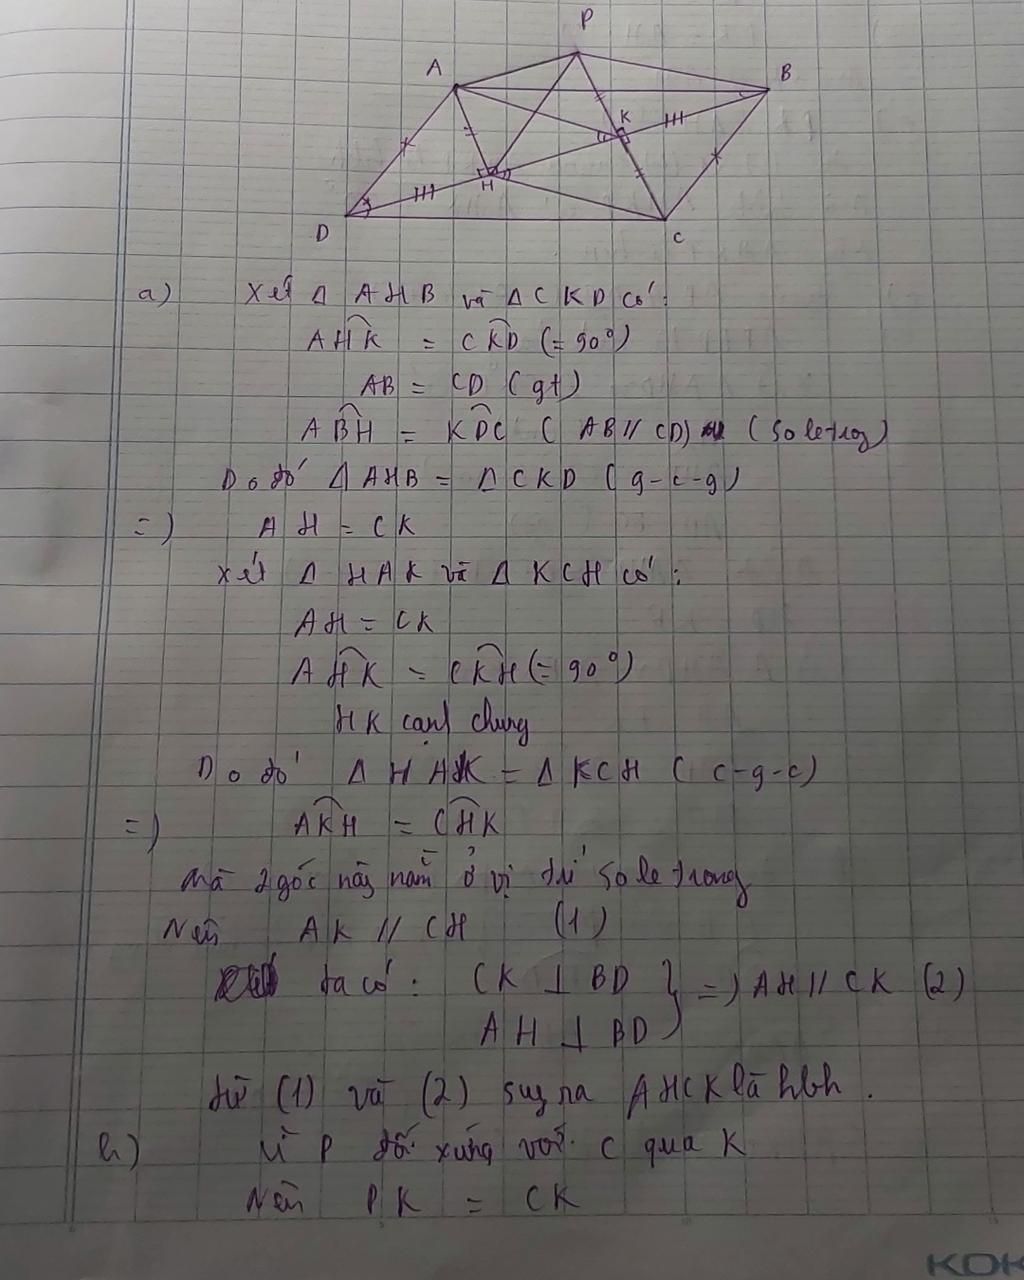 P
A
B
K
H
D
C
a) Xét Δ AHB và Δ CKD có:
AHK = CKD (= 90°)
AB = CD (gt)
ABH = KDC ( AB // CD) (so le trog)
Do đó Δ AHB = Δ CKD ( g-c-g)
=) AH = CK
Xét Δ HAK và Δ KCH có:
AH = CK
AHK = CKH (= 90°)
HK cạnh chung
Do đó Δ HAK = Δ KCH ( c-g-c)
=) AKH = CHK
Mà 2 góc này nằm ở vị trí so le trong
Nên AK // CH (1)
ta có: CK ⊥ BD } =) AH // CK (2)
AH ⊥ BD
từ (1) và (2) suy ra AHCK là hbh.
b) Vì P đối xứng với C qua K
Nên PK = CK
KOK